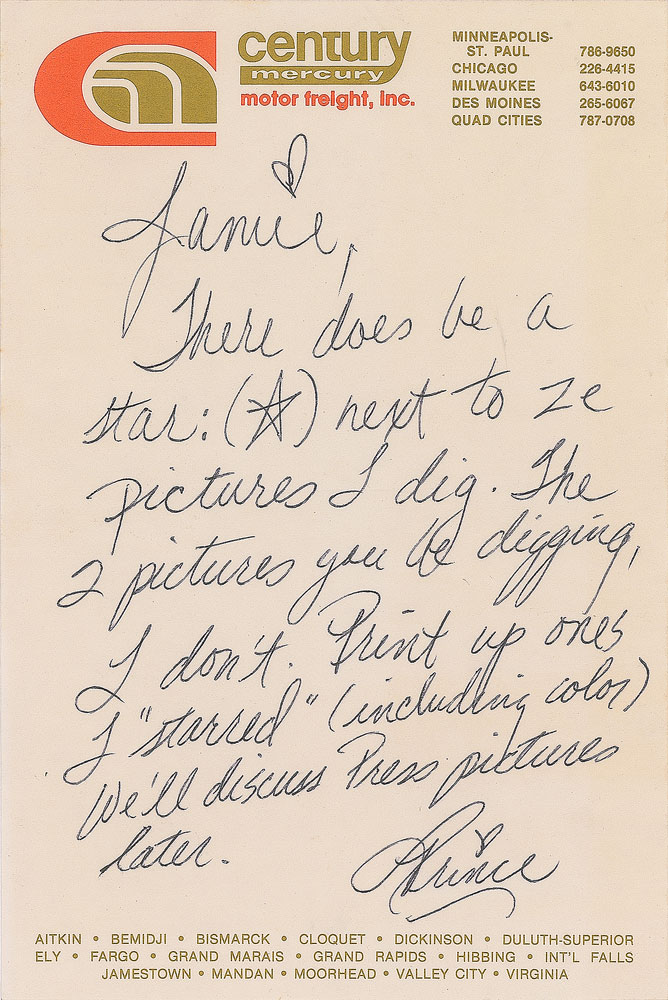 century
mercury
motor freight, inc.
MINNEAPOLIS-
ST. PAUL 786-9650
CHICAGO 226-4415
MILWAUKEE 643-6010
DES MOINES 265-6067
QUAD CITIES 787-0708
Jamie,
There does be a
star: (☆) next to ze
pictures I dig. The
2 pictures you be digging,
I don't. Print up ones
I "starred" (including color)
We'll discuss Press pictures
later. Prince
AITKIN • BEMIDJI • BISMARCK • CLOQUET • DICKINSON • DULUTH-SUPERIOR
ELY • FARGO • GRAND MARAIS • GRAND RAPIDS • HIBBING • INT'L FALLS
JAMESTOWN • MANDAN • MOORHEAD • VALLEY CITY • VIRGINIA